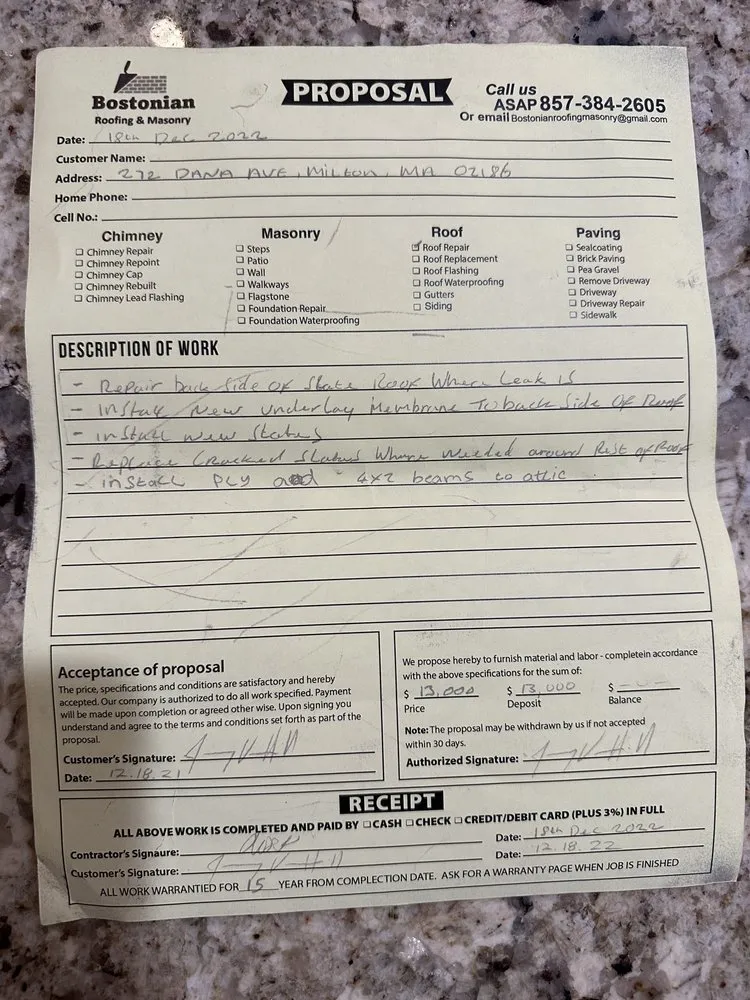 Bostonian
Roofing & Masonry
PROPOSAL
Call us
ASAP 857-384-2605
Or email Bostonianroofingmasonry@gmail.com
Date: 18th Dec 2022
Customer Name:
Address: 272 DANA AVE, MILTON, MA 02186
Home Phone:
Cell No.:
Chimney
☐ Chimney Repair
☐ Chimney Repoint
☐ Chimney Cap
☐ Chimney Rebuilt
☐ Chimney Lead Flashing
Masonry
☐ Steps
☐ Patio
☐ Wall
☐ Walkways
☐ Flagstone
☐ Foundation Repair
☐ Foundation Waterproofing
Roof
☑ Roof Repair
☐ Roof Replacement
☐ Roof Flashing
☐ Roof Waterproofing
☐ Gutters
☐ Siding
Paving
☐ Sealcoating
☐ Brick Paving
☐ Pea Gravel
☐ Remove Driveway
☐ Driveway
☐ Driveway Repair
☐ Sidewalk
DESCRIPTION OF WORK
- Repair back side of Slate Roof Where Leak is
- Install New underlay Membrane To back Side Of Roof
- install new Slates
- Replace Cracked Slates Where Needed around Rest of Roof
- install PLY and 4x2 beams to attic
Acceptance of proposal
The price, specifications and conditions are satisfactory and hereby
accepted. Our company is authorized to do all work specified. Payment
will be made upon completion or agreed other wise. Upon signing you
understand and agree to the terms and conditions set forth as part of the
proposal.
Customer's Signature:
Date: 12.18.21
We propose hereby to furnish material and labor - completein accordance
with the above specifications for the sum of:
$ 13,000 $ 13,000 $ - - -
Price Deposit Balance
Note: The proposal may be withdrawn by us if not accepted
within 30 days.
Authorized Signature:
RECEIPT
ALL ABOVE WORK IS COMPLETED AND PAID BY ☐ CASH ☐ CHECK ☐ CREDIT/DEBIT CARD (PLUS 3%) IN FULL
Contractor's Signaure: Date: 18th Dec 2022
Customer's Signature: Date: 12.18.22
ALL WORK WARRANTIED FOR 15 YEAR FROM COMPLECTION DATE. ASK FOR A WARRANTY PAGE WHEN JOB IS FINISHED